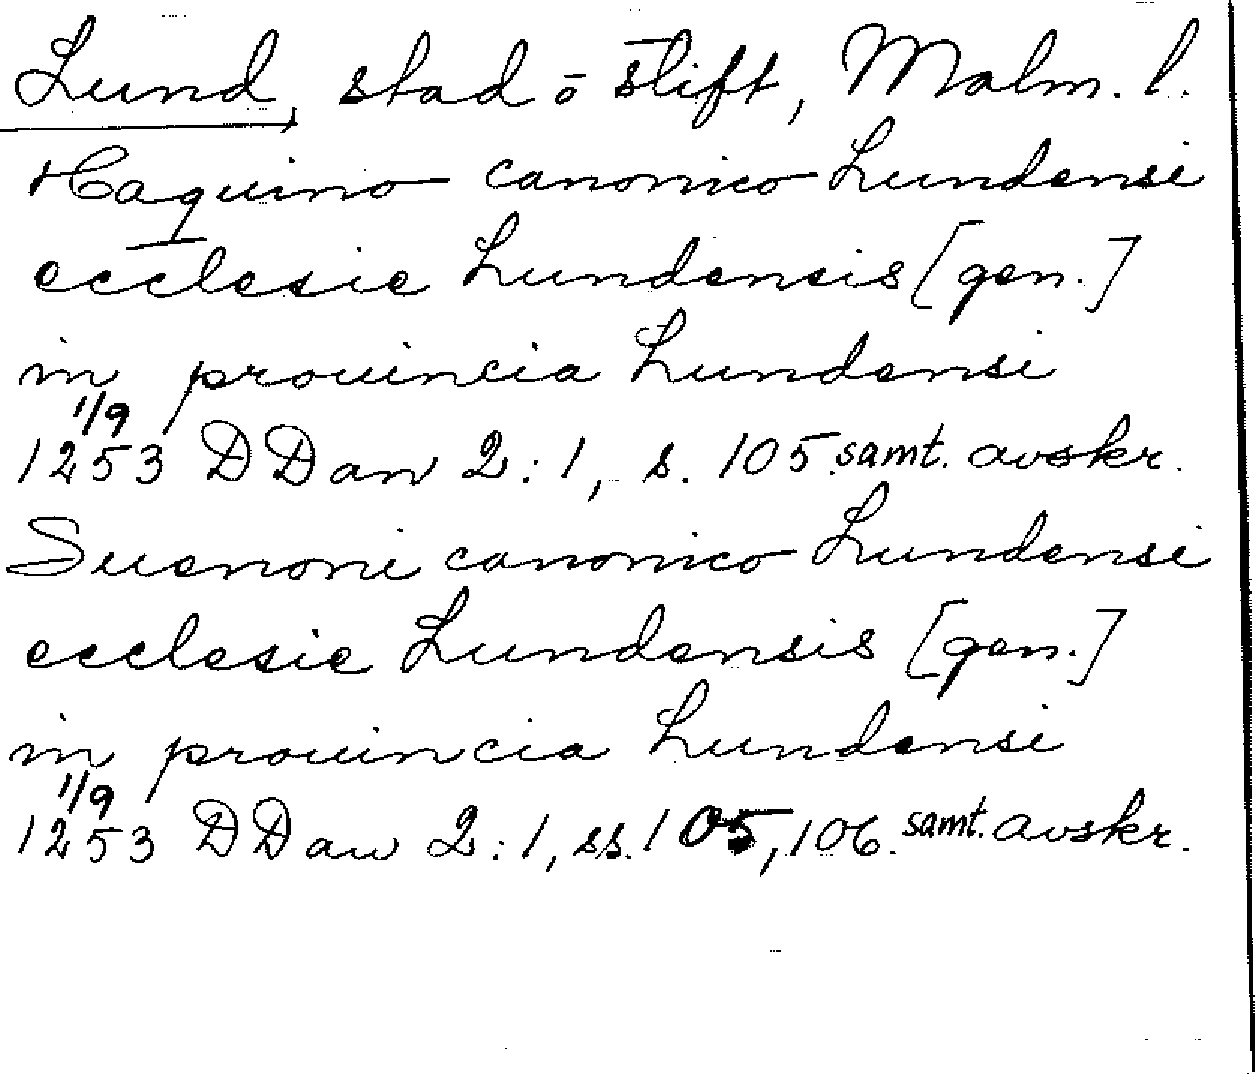 Lund, stad o stift, Malm. l.
Haquino canonico Lundensi
ecclesie Lundensis [gen.]
in prouincia Lundensi
1/9
1253 DDan 2:1, s. 105. samt. avskr.
Suenoni canonico Lundensi
ecclesie Lundensis [gen.]
in prouincia Lundensi
1/9
1253 DDan 2:1, ss. 105, 106. samt. avskr.